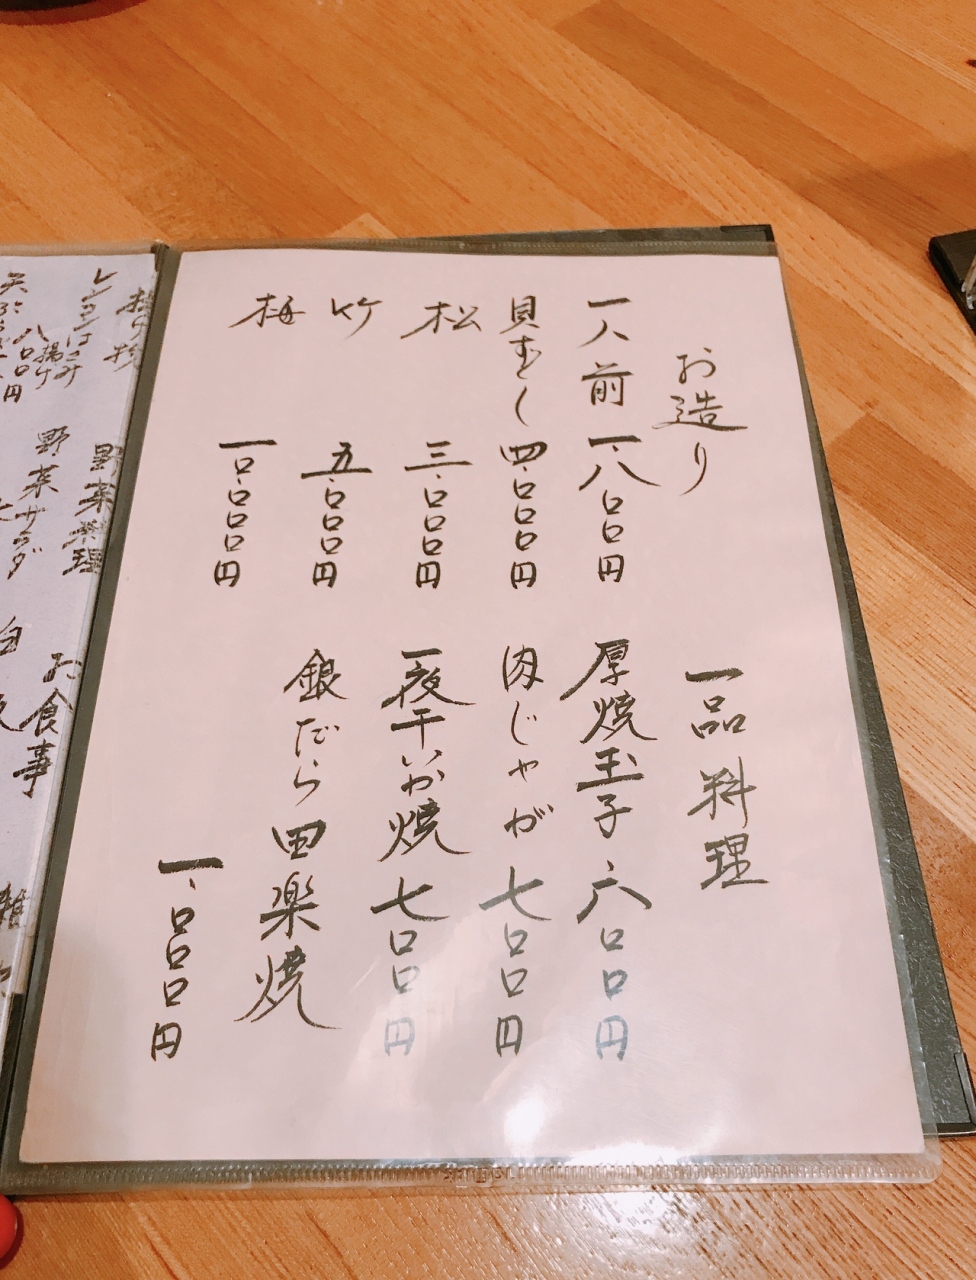 お造り
一人前 一、八〇〇円
四、〇〇〇円
松 三、〇〇〇円
竹 五、〇〇〇円
梅 一〇、〇〇〇円
一品料理
厚焼玉子 六〇〇円
肉じゃが 七〇〇円
一夜干いか焼 七〇〇円
銀だら田楽焼
一、〇〇〇円
揚げ物
レンコンはさみ
揚げ
八〇〇円
野菜料理
野菜サラダ
お食事